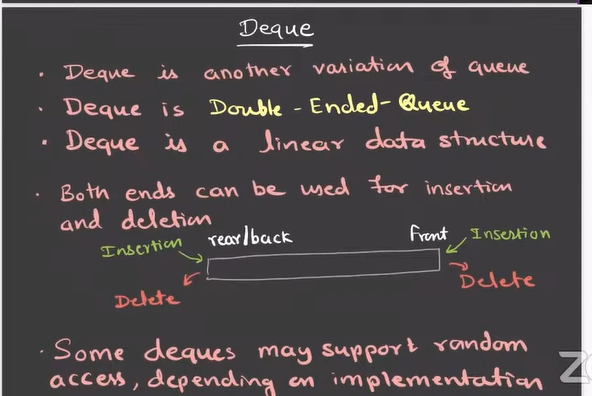 Deque
· Deque is another variation of queue
· Deque is Double-Ended-Queue
· Deque is a linear data structure
· Both ends can be used for insertion
and deletion
Insertion rear/back Front Insertion
Delete Delete
· Some deques may support random
access, depending on implementation